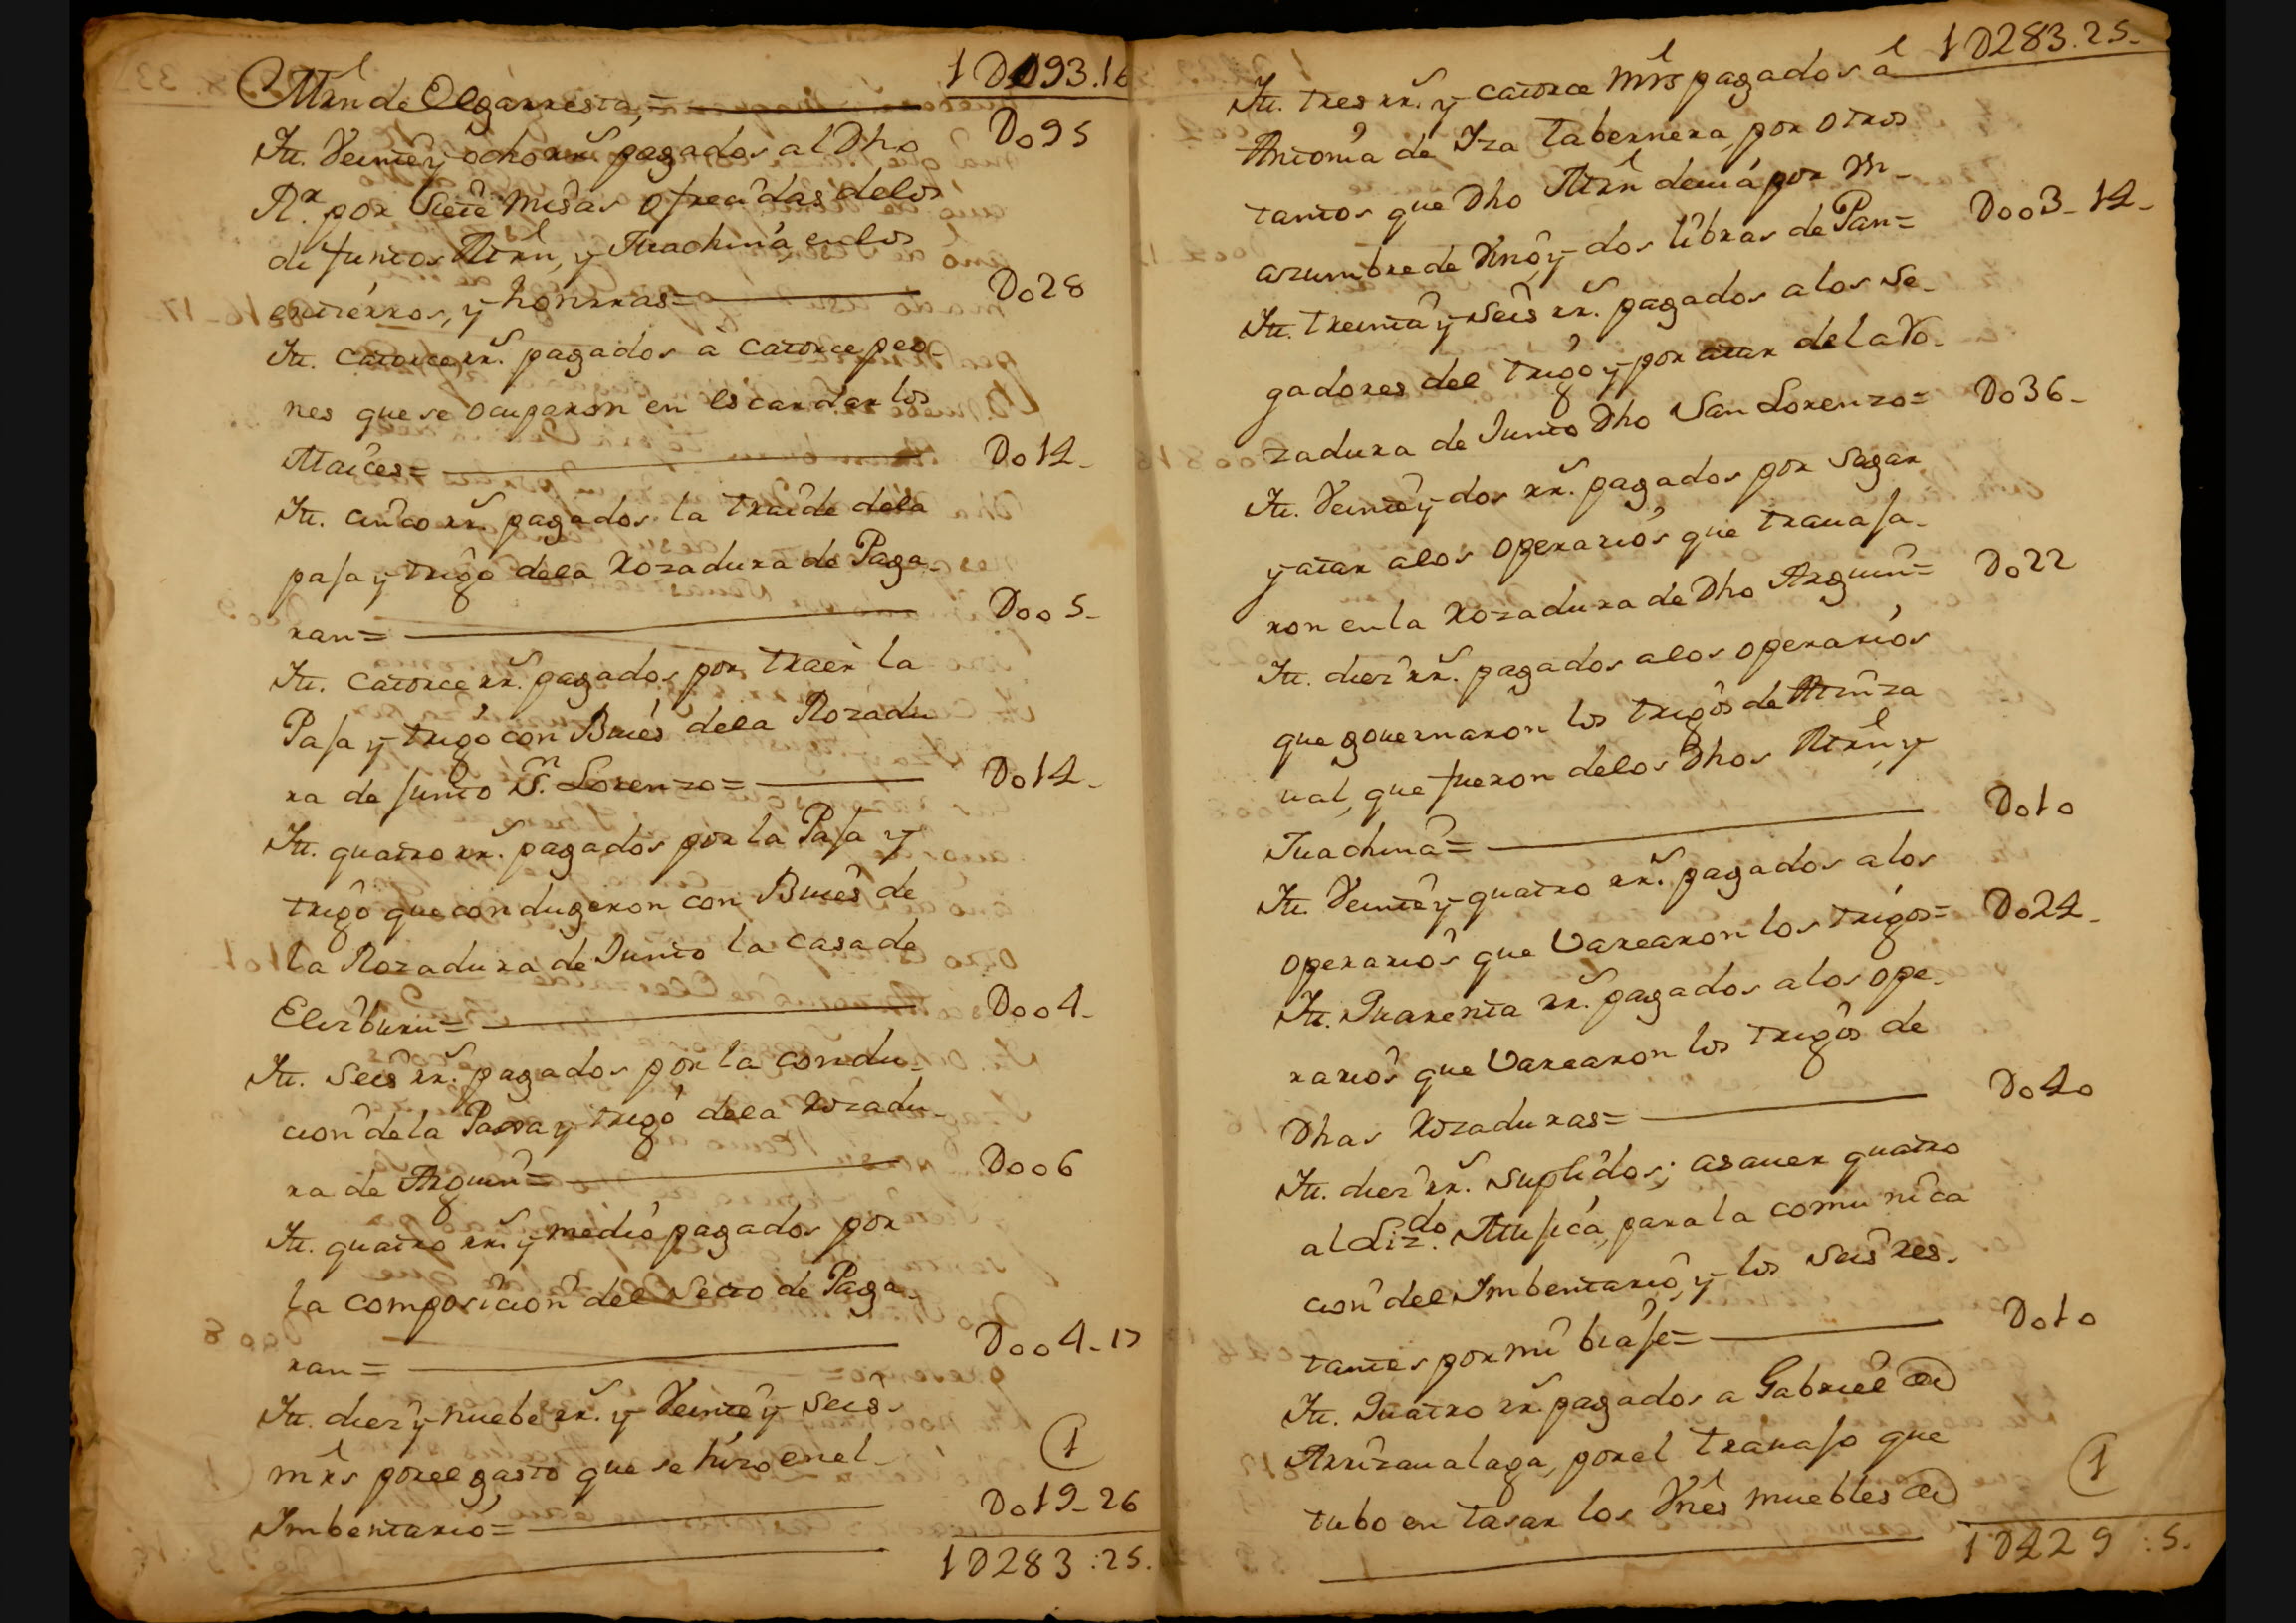 1D093.16
Mrn de Olgarresta,=
Itt. Veinte y ocho rrs. pagados al Dho D095
Rr. por Siete Misas ofrecidas de los
difuntos Mrn, y Juachina, en los
entierros, y honrras= D028
Itt. Catorce rrs. pagados à Catorce peo-
nes que se ocuparon en escardar los
Maices= D014-
Itt. cinco rrs. pagados la traide dela
paja y trigo dela Rozadura de Paga-
ran= D005-
Itt. Catorce rrs. pagados por traer la
Paja y trigo con Bues dela Rozadu
ra de junto Sn. Lorenzo= D014-
Itt. quatro rrs. pagados por la Paja y
trigo que condugeron con Bues de
la Rozadura de Junto la casa de
Elizburu= D004-
Itt. Seis rrs. pagados por la condu-
cion de la Paxa y trigo dela Rozadu-
ra de Arguin= D006
Itt. quatro rrs. y medio pagados por
la composicion del Secto de Paga-
ran= D004-17
Itt. diez y nuebe rrs. y Veinte y Seis
mrs por el gasto que se hizo en el
1
Imbentario= D019-26
1D283:25.
1D283.25-
Itt. tres rrs. y catorce mrs pagados a
Antonia de Iza tabernera, por otros
tantos que Dho Mrn devia por m-
azumbre de Vino y dos libras de Pan= D003-14-
Itt. treinta y Seis rrs. pagados a los Se-
gadores del trigo y por atar de la Ro-
zadura de Junto Dho San Lorenzo= D036-
Itt. Veinte y dos rrs. pagados por Sagar
y atar alos operarios que travaja-
ron en la Rozadura de Dho Arguin= D022
Itt. diez rrs. pagados alos operarios
que governaron los trigos de
val, que fueron delos Dhos Mrn, y
Juachina= D010
Itt. Veinte y quatro rrs. pagados alos
operarios que Varearon los trigos= D024-
Itt. Quarenta rrs. pagados alos ope-
rarios que Varearon los trigos de
Dhas Rozaduras= D040
Itt. diez rrs. suplidos; asaver quatro
al Lizdo. Mujica, para la comunica
cion del Imbentario, y los Seis res-
tantes por mi biaje= D010
Itt. Quatro rrs. pagados a Gabriel de
Arrizavalaga, por el travajo que
tubo en tasar los Vnes muebles de
1
1D429:5.